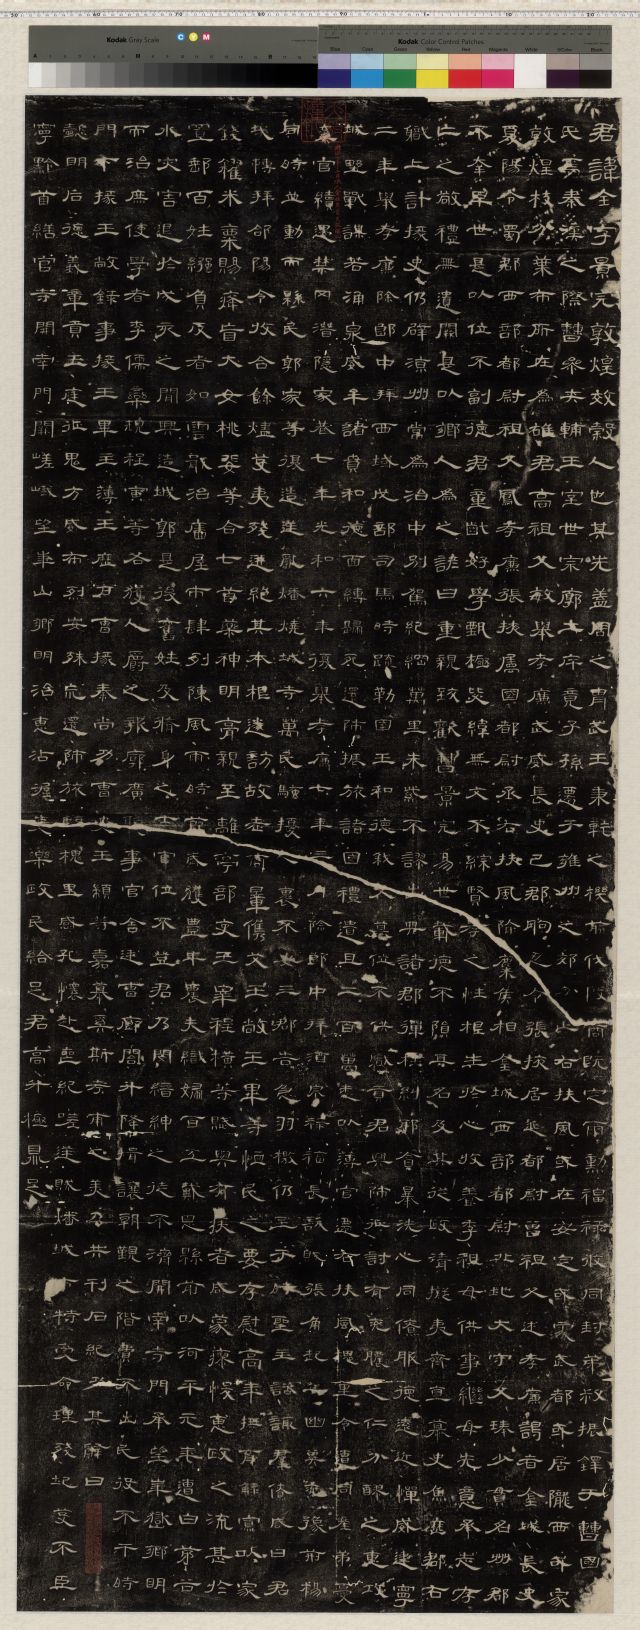 Kodak Gray Scale
C Y M
Kodak Color Control Patches
Blue Cyan Green Yellow Red Magenta White 3/Color Black
君諱全字景完敦煌效穀人也其先蓋周之胄武王秉乾之機翦伐殷商既定爾勳福祿攸同封弟叔振鐸于曹國
氏焉秦漢之際曹參夾輔王室世宗廓土斥竟子孫遷于雍州之郊分止右扶風或在安定或處武都或居隴西或家
敦煌枝分葉布所在為雄君高祖父敏舉孝廉武威長史巴郡朐忍令張掖居延都尉曾祖父述孝廉謁者金城長史
夏陽令蜀郡西部都尉祖父鳳孝廉張掖屬國都尉丞右扶風隃麋侯相金城西部都尉北地大守父琫少貫名州郡
不幸早世是以位不副德君童齔好學甄極毖緯無文不綜賢孝之性根生於心收養季祖母供事繼母先意承志存
亡之敬禮無遺闕是以鄉人為之諺曰重親致歡曹景完易世載德不隕其名及其從政清擬夷齊直慕史魚歷郡右
職上計掾史仍辟涼州常為治中別駕紀綱萬里朱紫不謬出典諸郡彈枉糾邪貪暴洗心同僚服德遠近憚威建寧
二年舉孝廉除郎中拜西域戊部司馬時疏勒國王和德弒父篡位不供職貢君興師征討有吮膿之仁分醪之惠攻
城野戰謀若涌泉威牟諸賁和德面縛歸死還師振旅諸國禮遺且二百萬悉以薄官遷右扶風槐里令遭同產弟憂
棄官續遇禁冈潛隱家巷七年光和六年復舉孝廉七年三月除郎中拜酒泉祿福長訞賊張角起兵幽冀兗豫荊楊
同時並動而縣民郭家等復造逆亂燔燒城寺萬民騷擾人裹不安三郡告急羽檄仍至于時聖主諮諏群僚咸曰君
哉轉拜郃陽令收合餘燼芟夷殘迸絕其本根遂訪故老商量儁艾王敞王畢等恤民之要存慰高年撫育鰥寡以家
錢糴米粟賜癃盲大女桃婓等合七首藥神明膏親至離亭部吏王皋程橫等賦與有疾者咸蒙瘳悛惠政之流甚於
置郵百姓繈負反者如雲戢治廧屋市肆列陳風雨時節歲獲豐年農夫織婦百工戴恩縣前以河平元年遭白茅谷
水灾害退於戌亥之間興造城郭是後舊姓及脩身之士官位不登君乃閔縉紳之徒不濟開南寺門承望華嶽鄉明
而治庶使學者李儒欒規程寅等各獲人爵之報廓廣聽事官舍廷曹廊閤升降揖讓朝覲之階費不出民役不干時
門下掾王敞錄事掾王畢主薄王歷戶曹掾秦尚功曹史王顓等嘉慕奚斯考甫之美乃共刊石紀功其辭曰
懿明后德義章貢王庭征鬼方威布烈安殊荒還師旅臨槐里感孔懷赴喪紀嗟逆賊燔城市特受命理殘圮芟不臣
寧黔首繕官寺開南門闕嵯峨望華山鄉明治惠沾渥吏樂政民給足君高升極鼎足